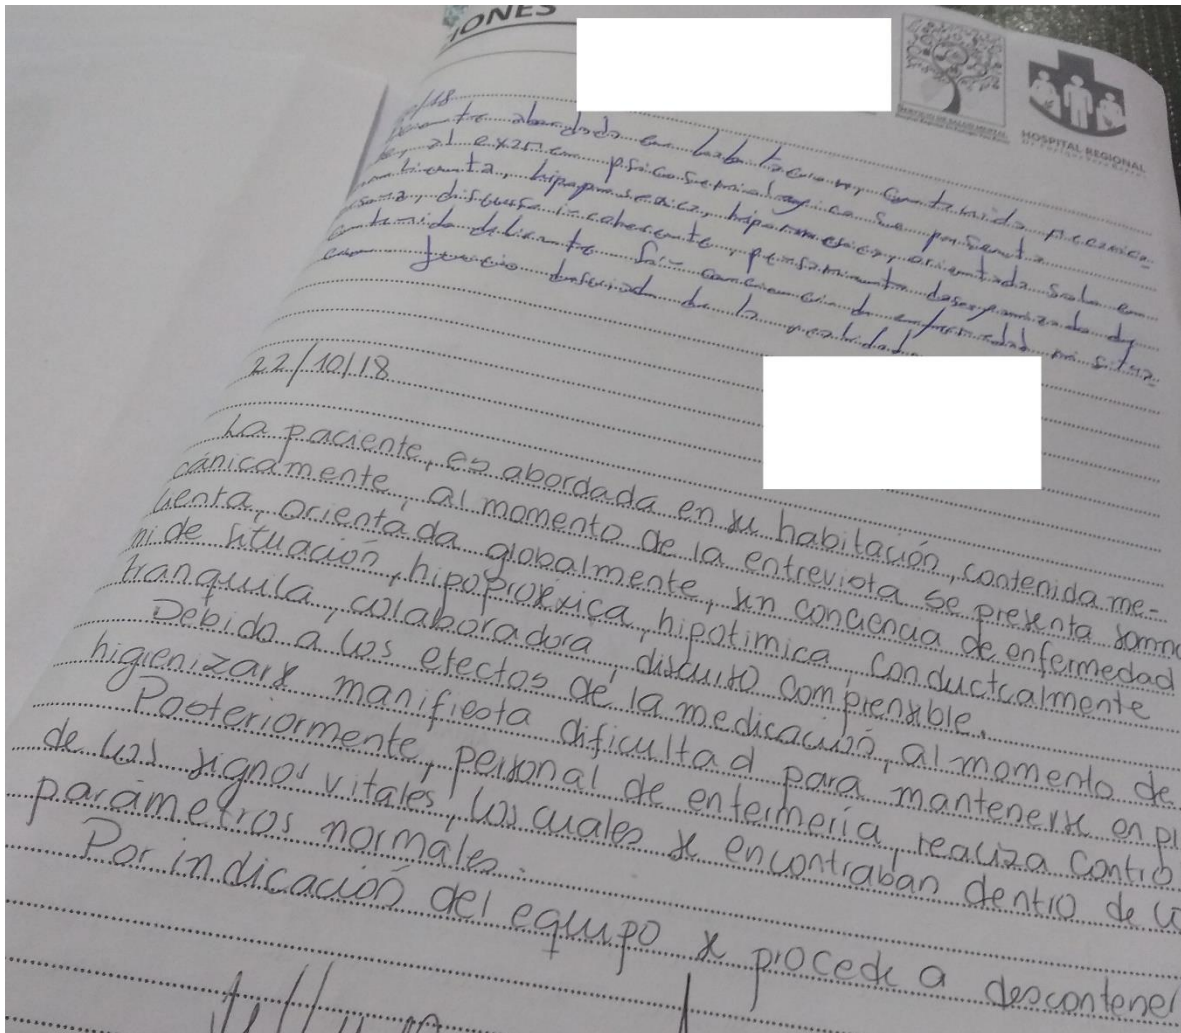 IONES
SERVICIO DE SALUD MENTAL
HOSPITAL REGIONAL
/18
abordada en habitación, contenida mecánica-
al examen psicosemiológico se presenta
hipoproséxica, hipomnésica, orientada solo en
discurso incoherente, pensamiento desorganizado de
contenido delirante sin conciencia de enfermedad ni situa-
con juicio de la realidad
22/10/18
La paciente, es abordada en su habitación, contenida me-
cánicamente, al momento de la entrevista se presenta somno
lienta, orientada globalmente, sin conciencia de enfermedad
ni de situación, hipoproxexica, hipotimica, conductualmente
tranquila, colaboradora, discurso comprensible.
Debido a los efectos de la medicación, al momento de
higienizarse manifiesta dificultad para mantenerse en pi
Posteriormente, personal de enfermería, realiza contro
de los signos vitales, los cuales se encontraban dentro de lo
parámetros normales.
Por indicación del equipo se procede a descontener